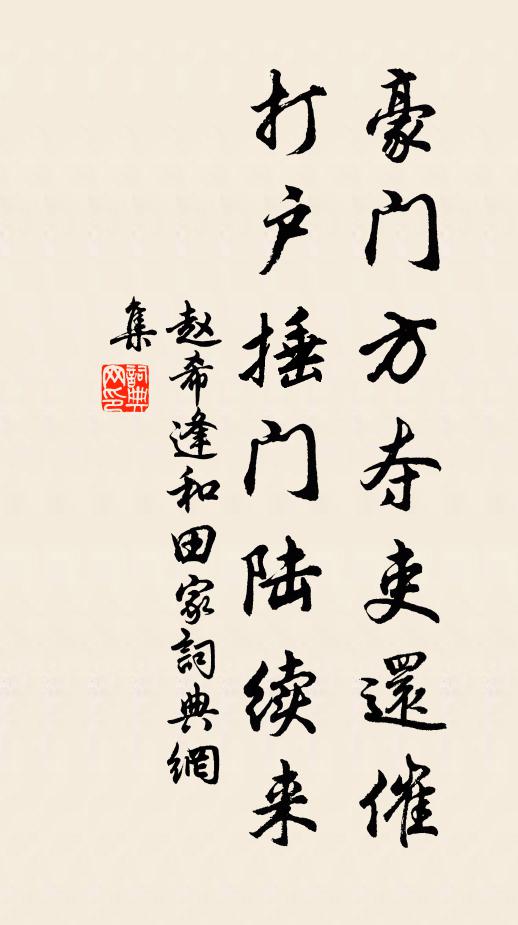 豪门方夺吏還催
打户捶门陆续来
赵希逢和田家詞典網
集
詞典网印